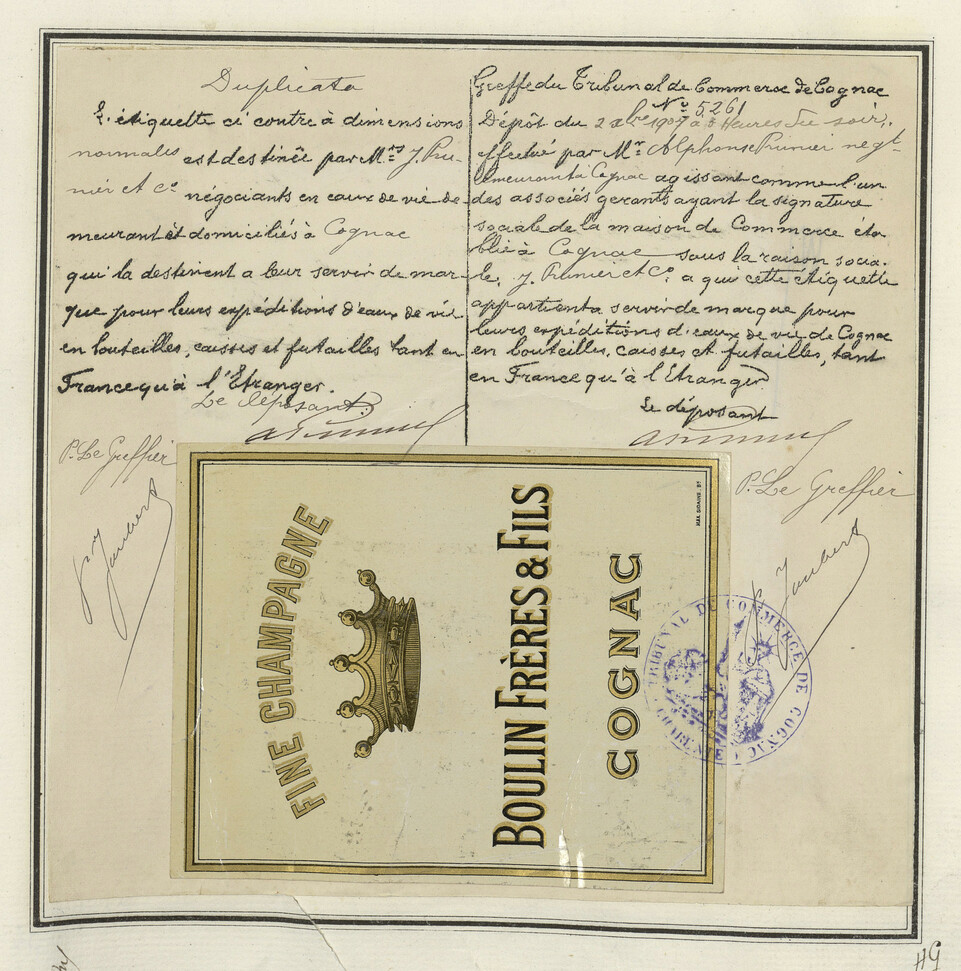 Duplicata
L'étiquette ci contre à dimensions
normales est destinée par Mrs J. Pru-
nier et Co négociants en eaux de vie de-
meurant et domiciliés à Cognac
qui la destinent a leur servir de mar-
que pour leurs expéditions d'eaux de vie
en bouteilles, caisses et futailles tant en
France qu'à l'Etranger.
Le Déposant
P. Le Greffier
Jaubert
Greffe du Tribunal de Commerce de Cognac
No 5261
Dépôt du 2 1907 à 3 Heures du soir,
effectué par Mr Alphonse Prunier negt
demeurant à Cognac agissant comme l'un
des associés gerants ayant la signature
sociale de la maison de Commerce éta
blie à Cognac sous la raison socia-
le, J. Prunier et Co. a qui cette étiquette
appartient a servir de marque pour
leurs expéditions d'eaux de vie de Cognac
en bouteilles, caisses et futailles, tant
en France qu'à l'Etranger
Le déposant
P. Le Greffier
Jaubert
FINE CHAMPAGNE
BOULIN FRÈRES & FILS
COGNAC
TRIBUNAL DU COMMERCE DE COGNAC
CHARENTE